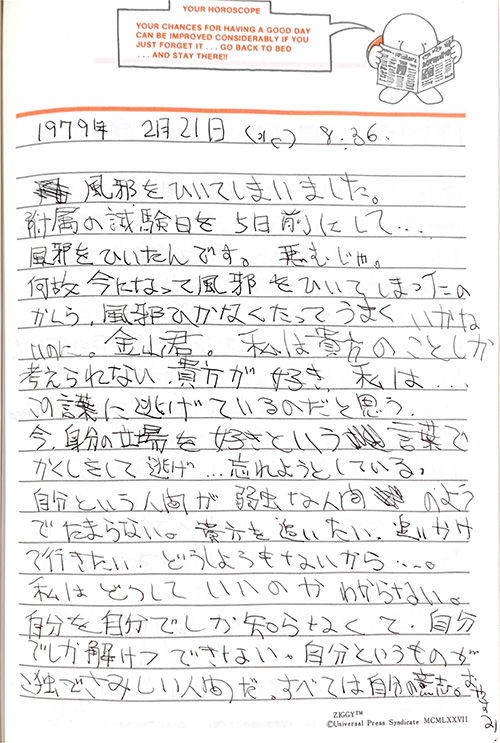 YOUR HOROSCOPE
YOUR CHANCES FOR HAVING A GOOD DAY
CAN BE IMPROVED CONSIDERABLY IF YOU
JUST FORGET IT . . . GO BACK TO BED
. . . AND STAY THERE!!
1979年 2月21日 (水) 8:36.
風邪をひいてしまいました。
附属の試験日を5日前にして...
風邪をひいたんです。悪むじゅ。
何故今になって風邪をひいてしまったの
かしら、風邪ひかなくたってうまくいかな
いのに。金山君。私は貴方のことしか
考えられない、貴方が好き、私は...
この言葉に逃げているのだと思う。
今、自分の立場を好きという言葉で
かくしきして逃げ...忘れようとしている。
自分という人間が弱虫な人間のよう
でたまらない。貴方を追いたい、追いかけ
て行きたい、どうしようもないから...。
私はどうしていいのかわからない。
自分を自分でしか知らなくて、自分
でしか解けつできない。自分というものが
独でさみしい人間だ。すべては自分の意志。
ZIGGY™
©Universal Press Syndicate MCMLXXVII